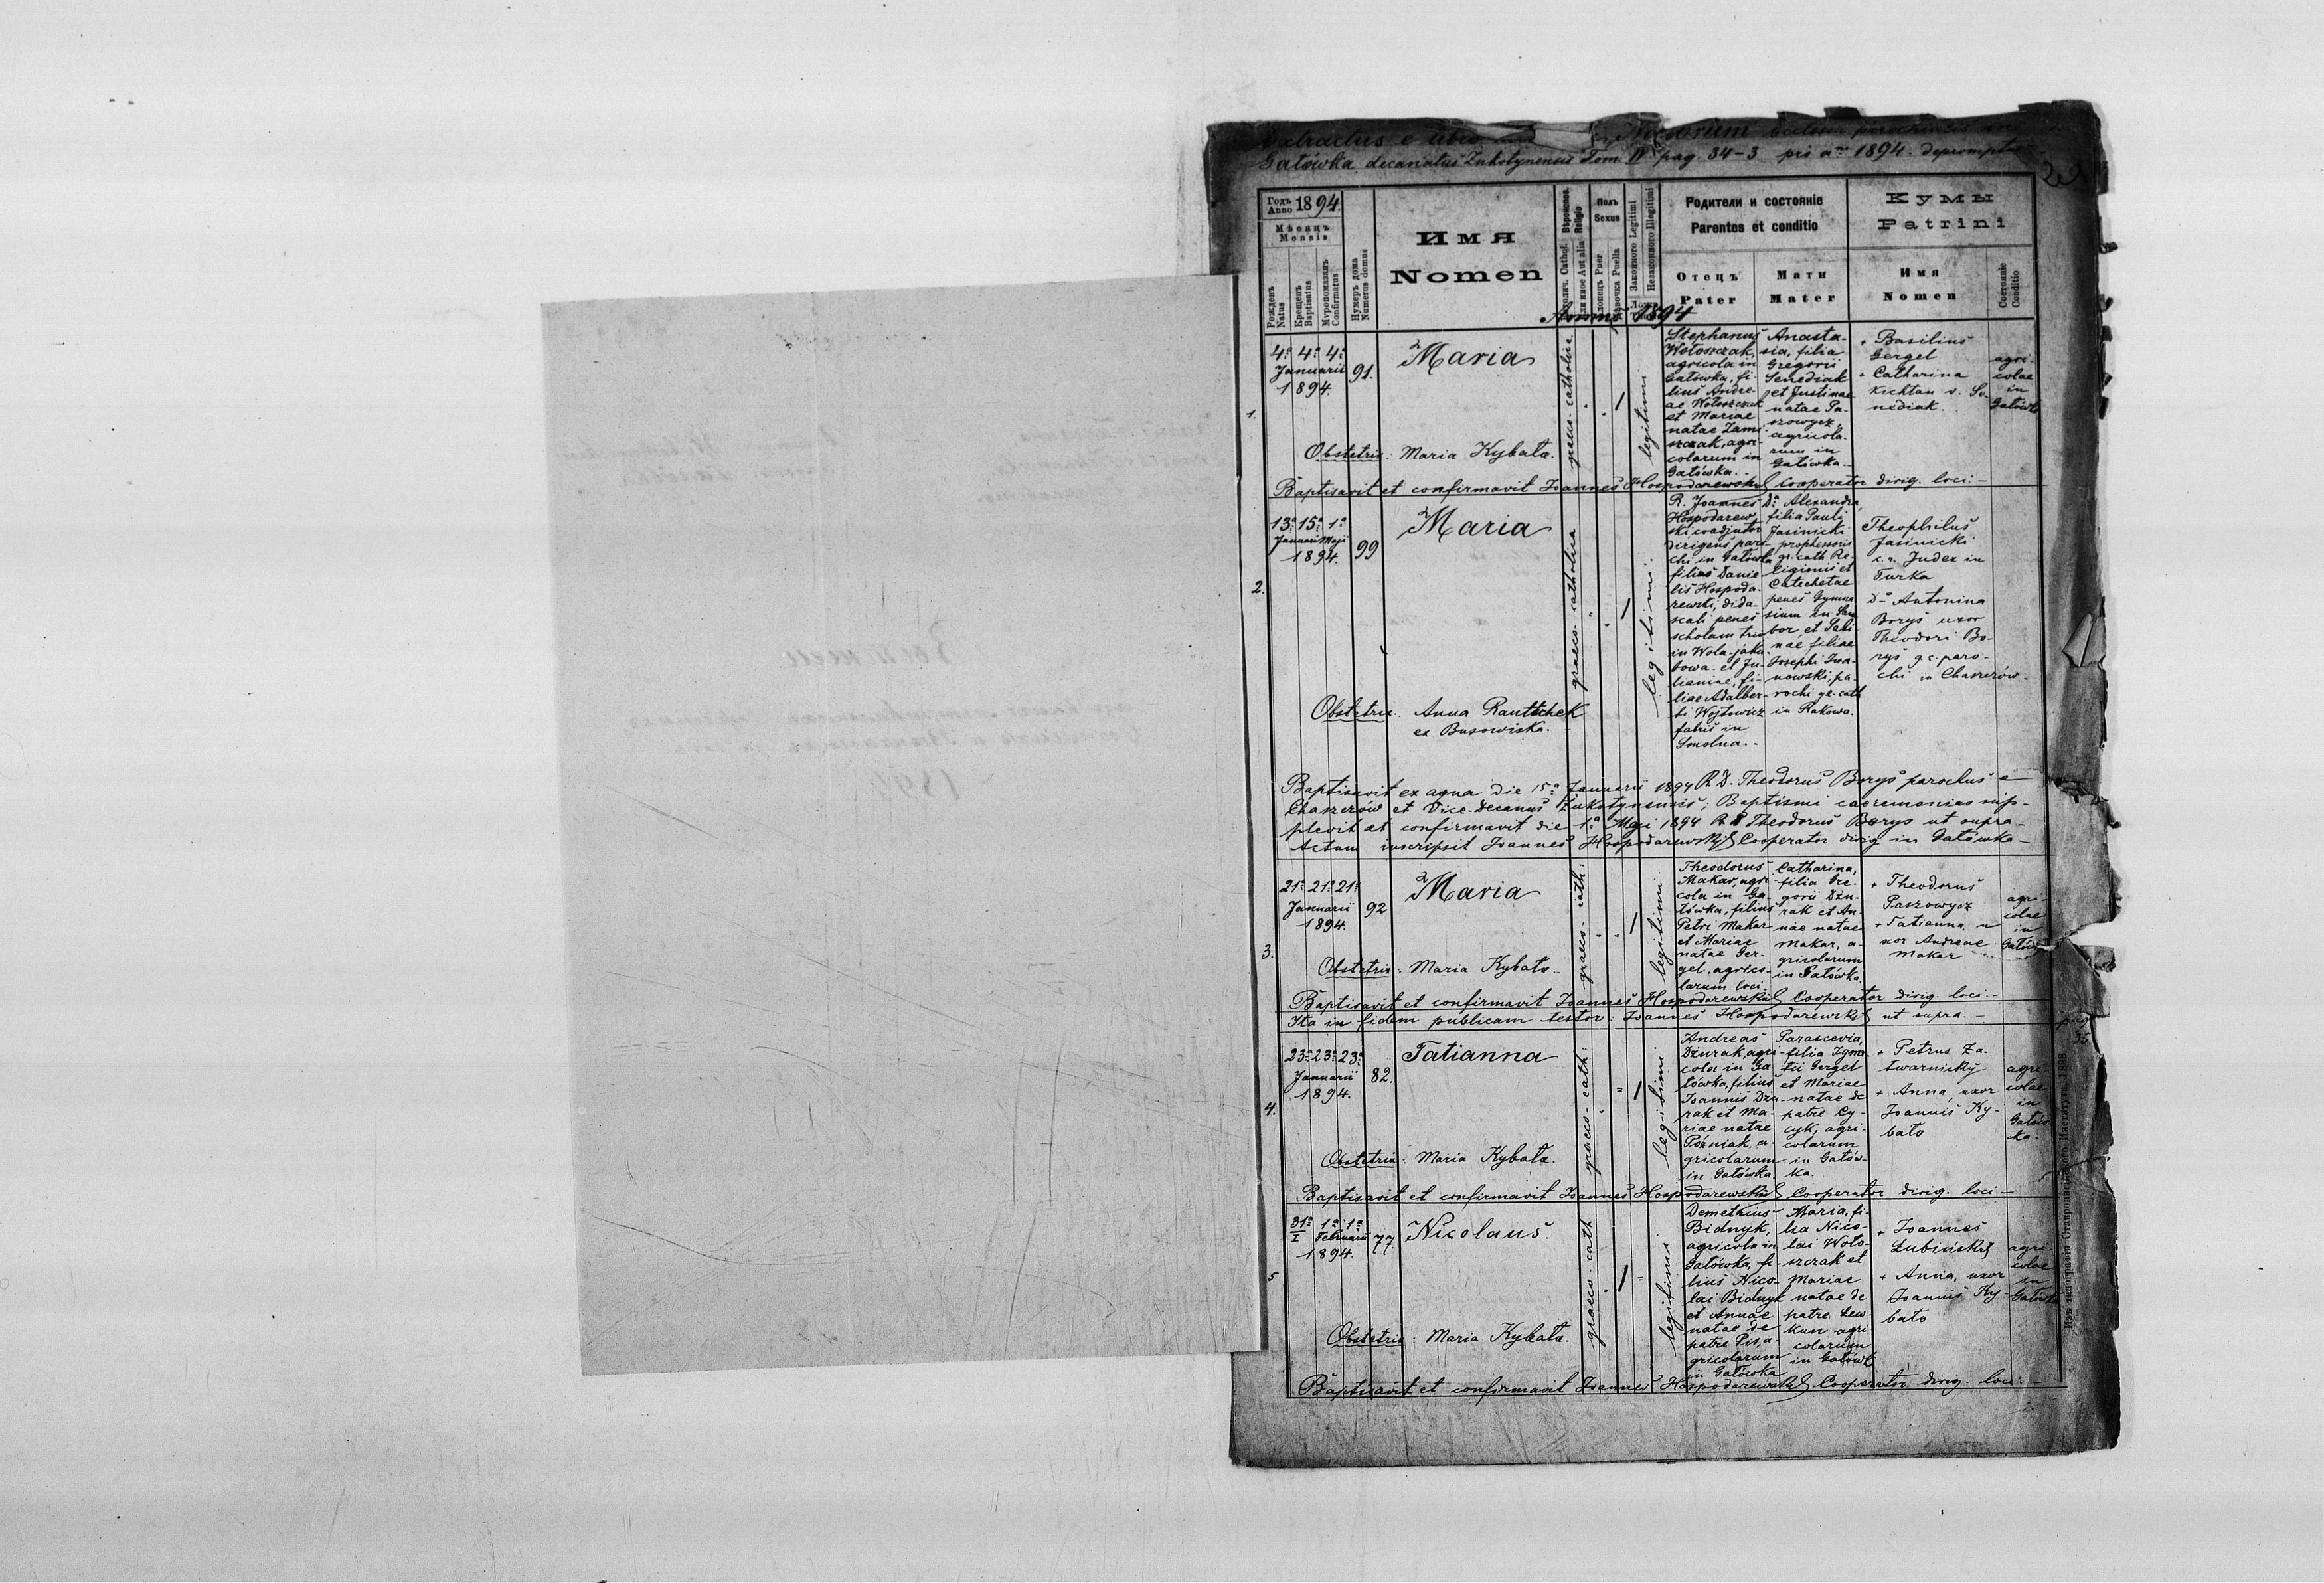 Extractus e libro Natorum ecclesiae parochialis
Gałówka decanatus Żukotynensis Tom. IV pag. 34-3 pro a= 1894. depromptus
29
Годъ Anno 1894.
Мѣсяцъ
Mensis
Рожденъ
Natus
Крещенъ
Baptisatus
Мѵропомазанъ
Confirmatus
Нумеръ дома
Numerus domus
Имя
Nomen
Вѣроиспов.
Religio
Католич. Cathol.
или иное Aut alia
Полъ
Sexus
Хлопецъ Puer
Дѣвочка Puella
Ложа
Законного Legitimi
Незаконного Illegitimi
Родители и состояніе
Parentes et conditio
Отецъ
Pater
Мати
Mater
Кумы
Patrini
Имя
Nomen
Состояніе
Conditio
Anno 1894
1.
4a 4a 4a
Januarii
1894.
91.
Maria
graeco-catholica
legitimi
Stephanus
Wołoszczak,
agricola in
Gałówka, fi-
lius Andre-
ae Wołoszczak
et Mariae
natae Zami-
szczak, agri-
colarum in
Gałówka.
Anasta-
sia, filia
Gregorii
Senediak
et Justinae
natae Pa-
szowycz,
agricola-
rum in
Gałówka.
+ Basilius
Gergel
+ Catharina
Kichtan v. Se-
nediak.
agri-
colae
in
Gałówk
Obstetrix: Maria Kybała.
Baptisavit et confirmavit Joannes Hospodarewskij Cooperator dirig. loci.-
2.
13a 15a 1a
Januarii Maji
1894.
99
Maria
graeco-catholica
legitimi.
R. Joannes
Hospodarew-
ski coadjutor
dirigens paro-
chi in Gałówka
filius Danie-
lis Hospoda-
rewski, dida-
scali penes
scholam triv
in Wola-jaku-
bowa et Ju-
lianiae, fi-
liae Adalber-
ti Wojtowicz
fabris in
Smolna.-
Da Alexandra,
filia Pauli
Jasinicki
professoris
gr. cath. Re-
ligionis et
Catechetae
penes Gymna-
sium in Sam-
bor, et Sabi-
nae filiae
Josephi Iwa-
nowski, pa-
rochi gr. cath
in Rakowa.
Theophilus
Jasinicki
c.r. Judex in
Turka
Da Antonina
Borys uxor
Theodori Bo-
rys g.c. paro-
chi in Chaszczów.
Obstetrix. Anna Rauttchek
ex Busowiska.
Baptisavit ex aqua die 15a Januarii 1894 R. D. Theodorus Borys parochus e
Chaszczów et Vice-decanus Żukotynensis; Baptismi caeremonias sup-
plevit at confirmavit die 1a Maji 1894 R. D Theodorus Borys ut supra-
Actum inscripsit Joannes Hospodarewskij Cooperator dirig in Gałówka-
3.
21a 21a 21a
Januarii
1894.
92
Maria
graeco-cath:
legitimi
Theodorus
Makar, agri-
cola in Ga-
łówka, filius
Petri Makar
et Mariae
natae Ger-
gel, agrico-
larum loci.
Catharina,
filia Gre-
gorii Dżu-
rak et An-
nae natae
Makar, a-
gricolarum
in Gałówka.
+ Theodorus
Paszowycz
+ Tatianna, u-
xor Andreae
Makar
agri-
colae
in
Gałówk
Obstetrix: Maria Kybała.
Baptisavit et confirmavit Joannes Hospodarewskij Cooperator dirig. loci.-
Ita in fidem publicam testor: Joannes Hospodarewskij ut supra.-
pag.
35.
4.
23a 23a 23a
Januarii
1894.
82.
Tatianna
graeco-cath:
legitimi
Andreas
Dżurak, agri-
cola in Ga-
łówka, filius
Joannis Dżu-
rak et Ma-
riae natae
Poźniak, a-
gricolarum
in Gałówka.
Parascevia,
filia Igna-
tii Gergel
et Mariae
natae de
patre Cy-
cyk, agri-
colarum
in Gałów-
ka.
+ Petrus Za-
twarnickij
+ Anna, uxor
Joannis Ky-
bało
agri-
colae
in
Gałów-
ka.
Obstetrix: Maria Kybała.
Baptisavit et confirmavit Joannes Hospodarewskij Cooperator dirig. loci-
5
31a/I 1a 1a
Februarii
1894.
77.
Nicolaus.
graeco-cath
legitimi
Demetrius
Bidnyk,
agricola in
Gałówka, fi-
lius Nico-
lai Bidnyk
et Annae
natae de
patre Pis, a-
gricolarum
in Gałówka
Maria, fi-
lia Nico-
lai Woło-
szczak et
Mariae
natae de
patre Lew-
kun agri
colarum
in Gałówk
+ Joannes
Łubińskij
+ Anna, uxor
Joannis Ky-
bało
agri-
colae
in
Gałówk
Obstetrix: Maria Kybała.
Baptisavit et confirmavit Joannes Hospodarewskij Cooperator dirig. loci.-
Изъ типографіи Ставропигійского Института. 1888.